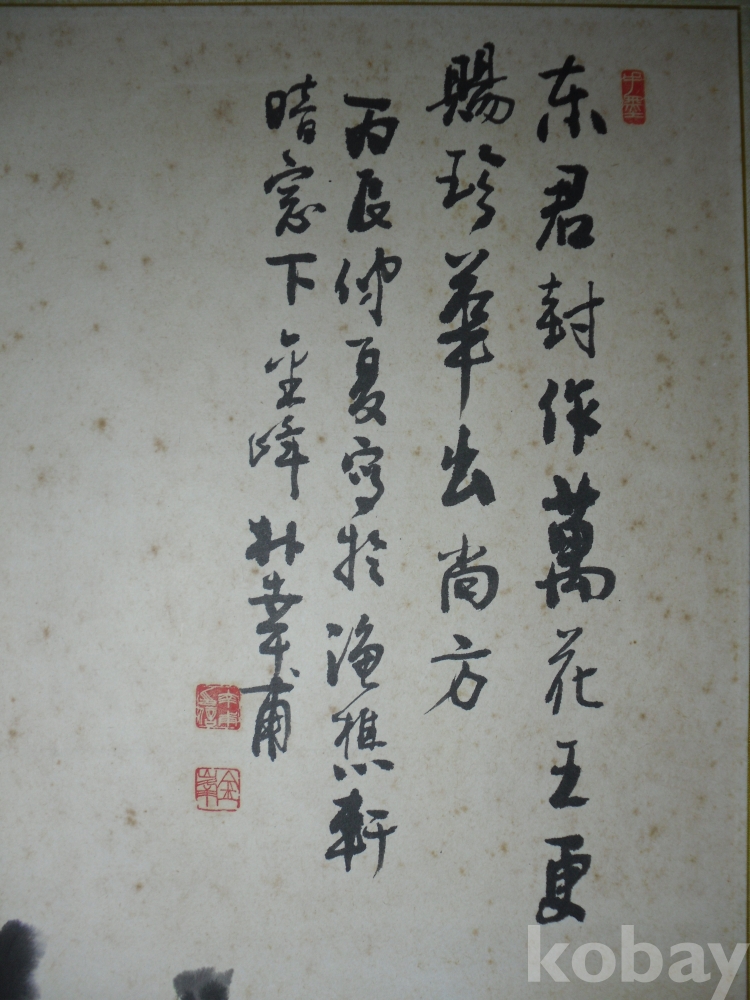 東君封作萬花王更
賜珍華出尚方
丙辰仲夏寫於漁樵軒
晴窓下金峰朴幸甫
金峯
kobay